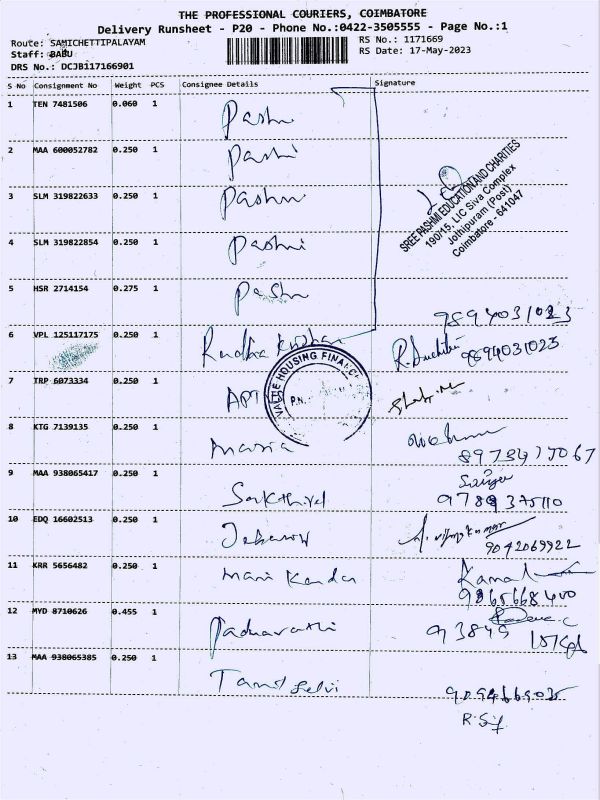 THE PROFESSIONAL COURIERS, COIMBATORE
Delivery Runsheet - P20 - Phone No.:0422-3505555 - Page No.:1
Route: SAMICHETTIPALAYAM
RS No.: 1171669
Staff: BABU
RS Date: 17-May-2023
DRS No.: DCJB117166901
S No Consignment No Weight PCS Consignee Details Signature
1 TEN 7481506 0.060 1 Pashmi
2 MAA 600052782 0.250 1 Pashmi
3 SLM 319822633 0.250 1 Pashmi
4 SLM 319822854 0.250 1 Pashmi
SREE PASHMI EDUCATION AND CHARITIES
190/15, LIC Siva Complex
Jothipuram (Post)
Coimbatore - 641047
5 HSR 2714154 0.275 1 Pashmi
9894031023
6 VPL 125117175 0.250 1 Radha Krishnan
9894031023
7 TRP 6073334 0.250 1
HOUSING FINANCE
P.N.
8 KTG 7139135 0.250 1 Maria
9 MAA 938065417 0.250 1 Sakthivel
10 EDQ 16602513 0.250 1
9042069922
11 KRR 5656482 0.250 1 Mani Kandan Kamal
9865668400
12 MYD 8710626 0.455 1 Padmavathi
13 MAA 938065385 0.250 1 Tamil Selvi